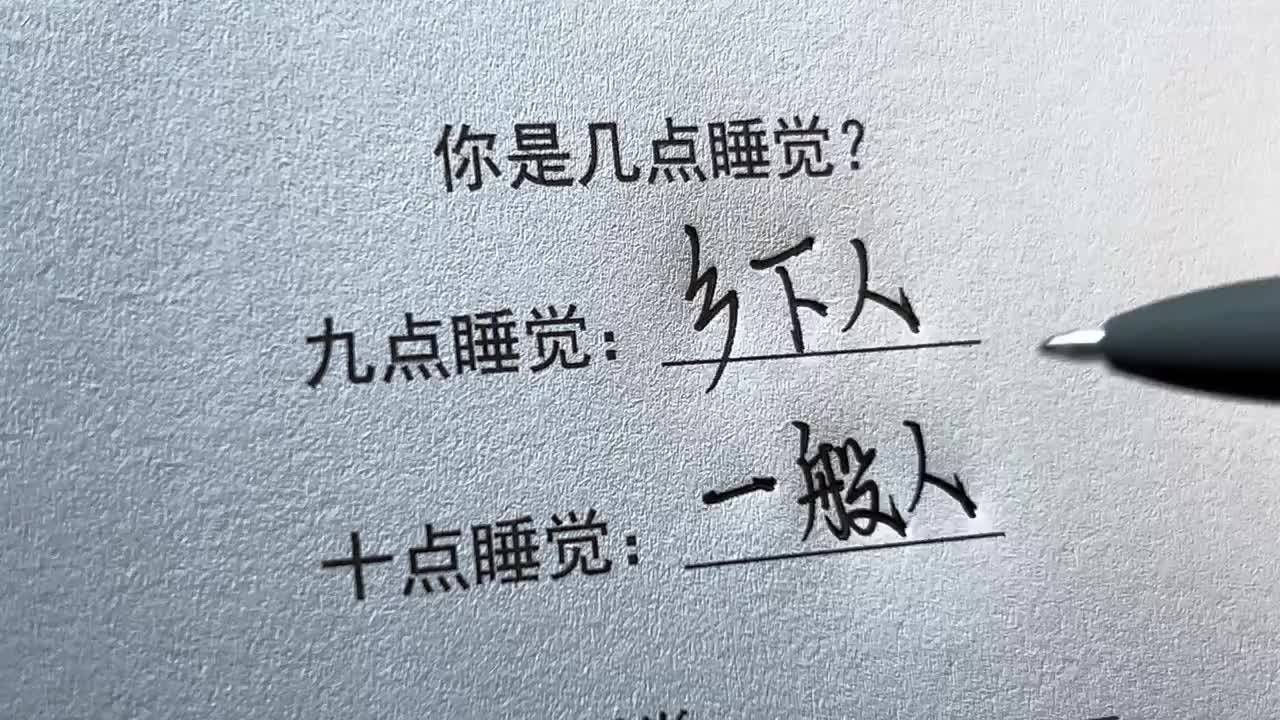 你是几点睡觉？
九点睡觉：乡下人
十点睡觉：一般人